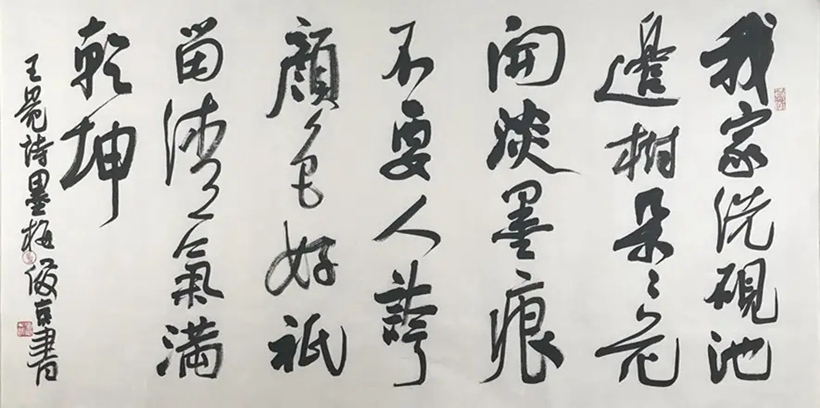 我家洗硯池
邊樹朵〻花
開淡墨痕
不要人誇
顏色好祇
留清氣滿
乾坤
王冕詩墨梅俊京書